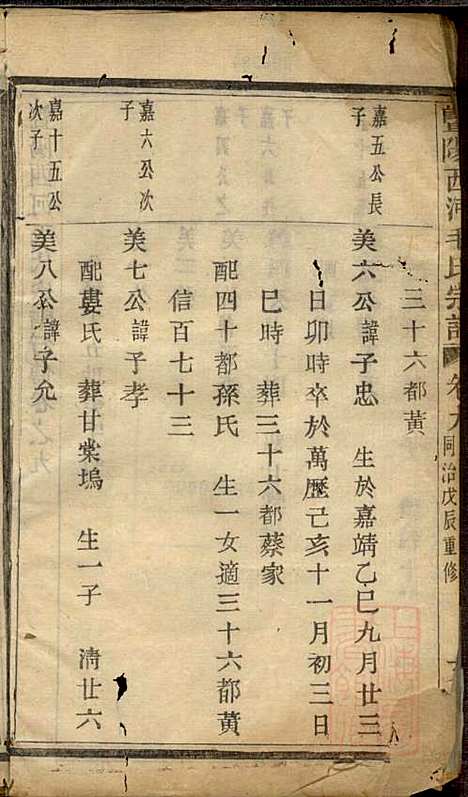 暨陽西河毛氏宗譜 卷九 同治戊辰重修
三十六都黄
嘉五公長
子
美六公諱子忠 生於嘉靖乙巳九月廿三
日卯時卒於萬歷己亥十一月初三日
巳時 葬三十六都蔡家
配四十都孫氏 生一女適三十六都黄
信百七十三
嘉六公次
子
美七公諱子孝
配婁氏 葬甘棠塢 生一子 清廿六
嘉十五公
次子
美八公諱子允